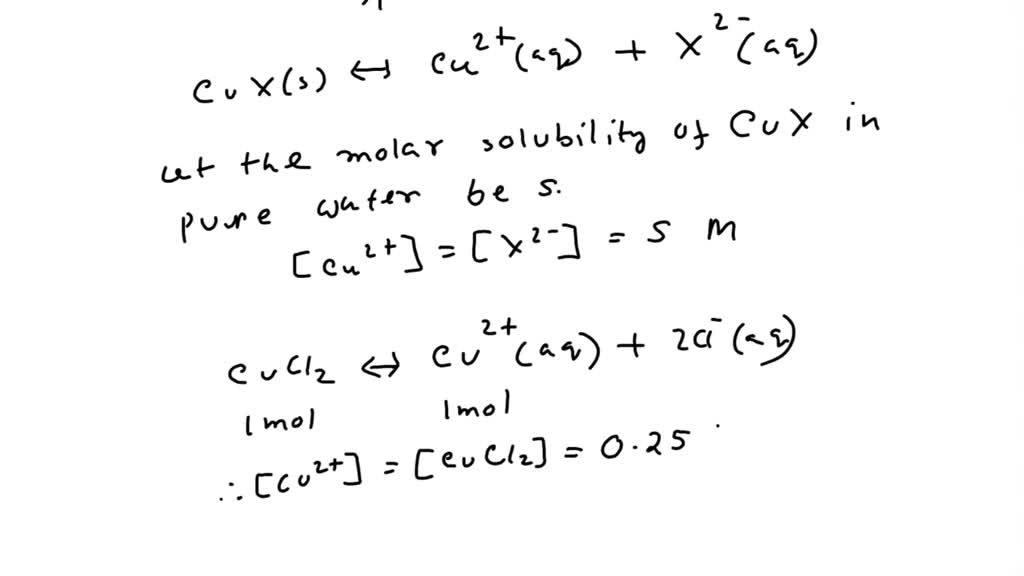 CuX(s) ↔ Cu²⁺(aq) + X²⁻(aq)
Let the molar solubility of CuX in
pure water be s.
[Cu²⁺] = [X²⁻] = S M
CuCl₂ ↔ Cu²⁺(aq) + 2Cl⁻(aq)
1mol 1mol
∴ [Cu²⁺] = [CuCl₂] = 0.25